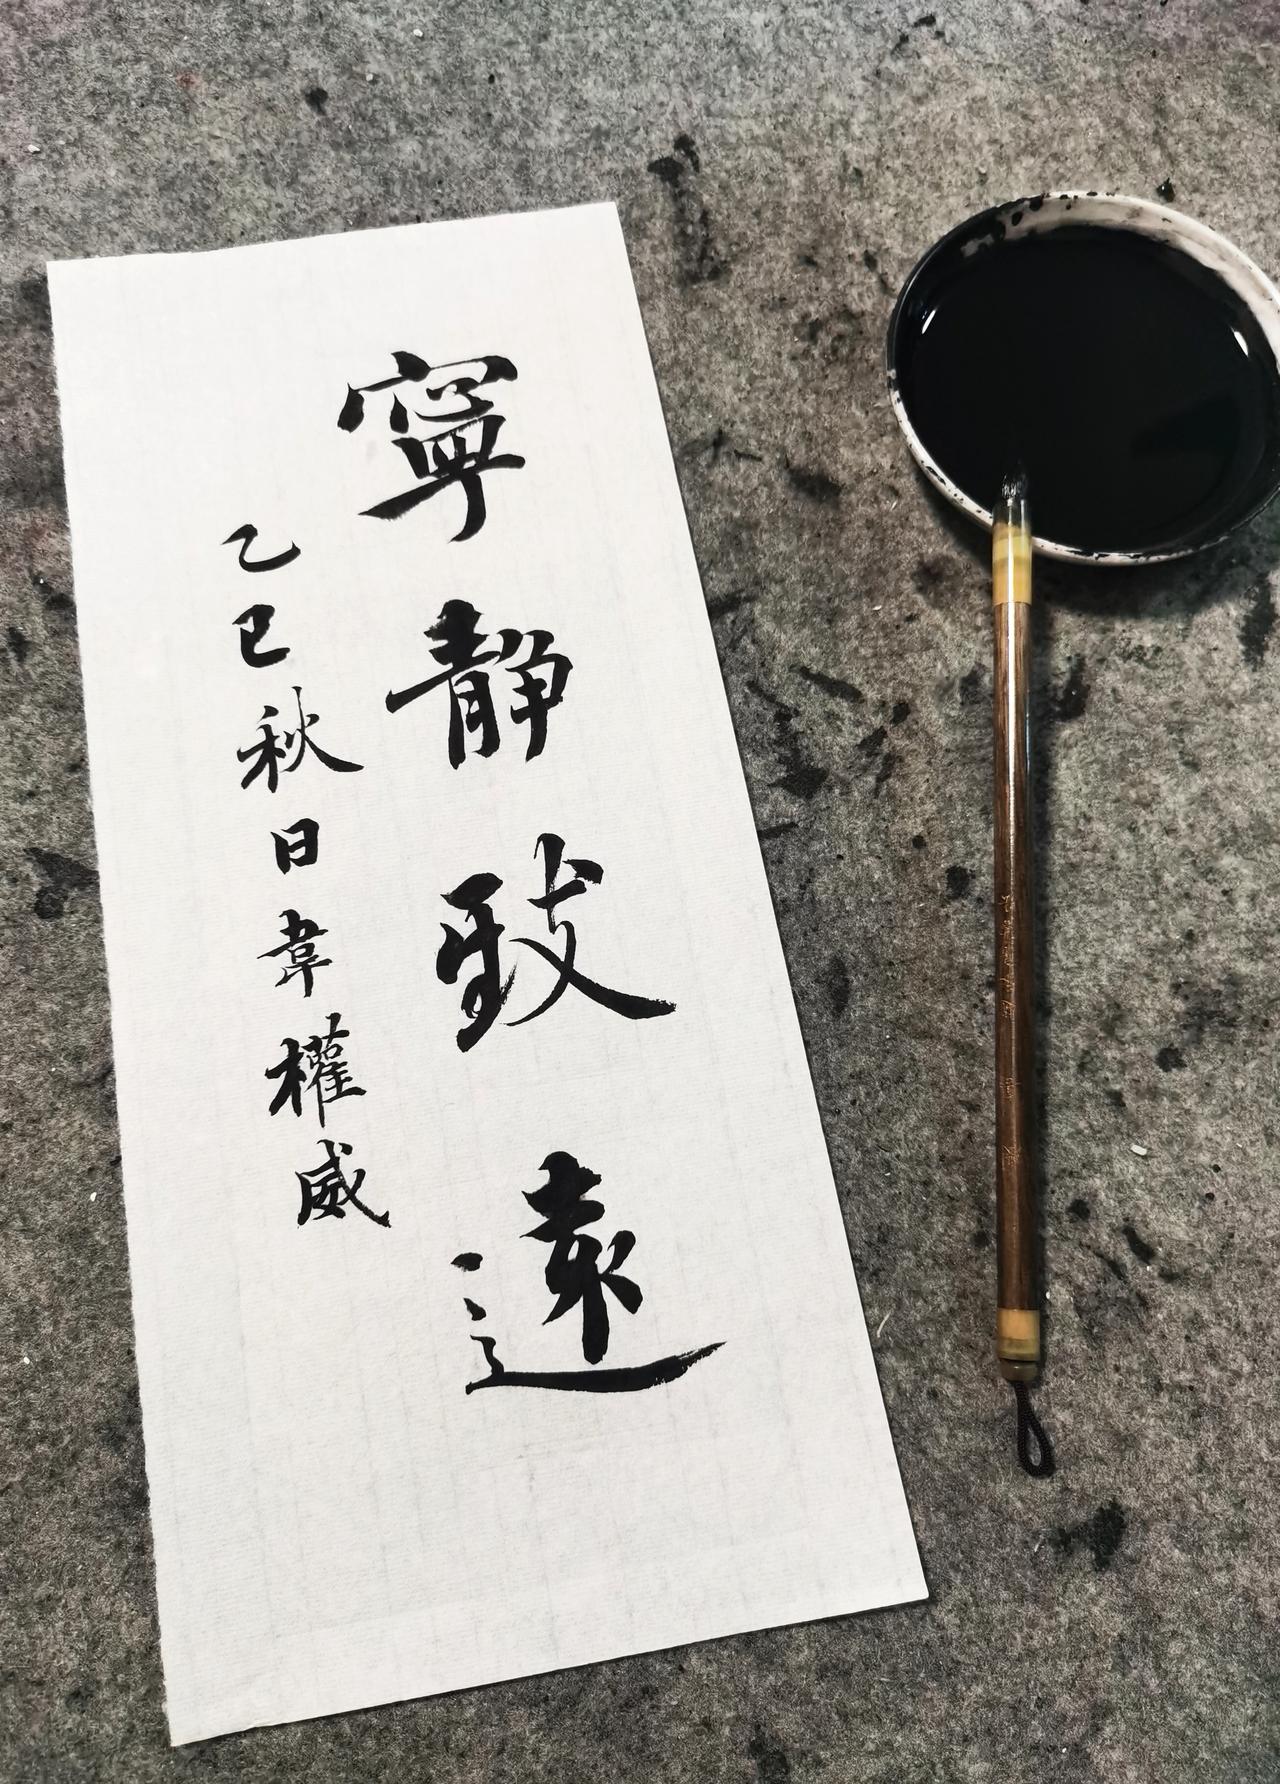 寧靜致遠
乙巳秋日韋權威